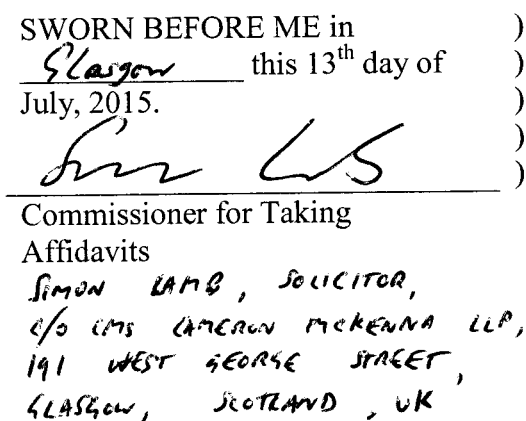 SWORN BEFORE ME in )
Glasgow this 13th day of )
July, 2015. )
)
)
Commissioner for Taking
Affidavits
SIMON LAMB, SOLICITOR,
c/o CMS CAMERON MCKENNA LLP,
191 WEST GEORGE STREET,
GLASGOW, SCOTLAND, UK